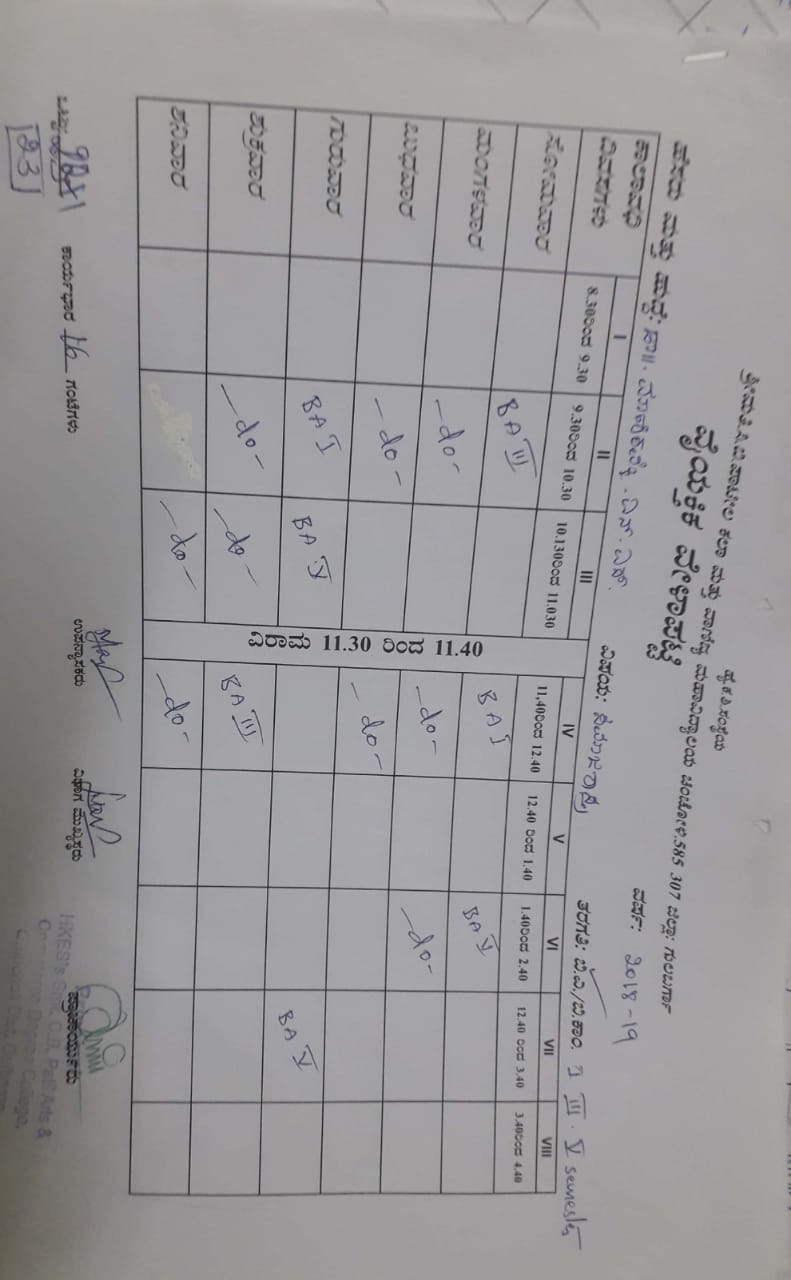 ಹೈ.ಕ.ಶಿ.ಸಂಸ್ಥೆಯ
ಶ್ರೀಮತಿ.ಸಿ.ಬಿ.ಪಾಟೀಲ ಕಲಾ ಮತ್ತು ವಾಣಿಜ್ಯ ಮಹಾವಿದ್ಯಾಲಯ ಚಿಂಚೋಳಿ.585 307 ಜಿಲ್ಲಾ: ಗುಲಬರ್ಗಾ
ವೈಯಕ್ತಿಕ ವೇಳಾಪಟ್ಟಿ
ವರ್ಷ: 2018-19
ಹೆಸರು ಮತ್ತು ಹುದ್ದೆ: ಡಾ||. ಎನ್. ಎಸ್. ವಿಷಯ: ತರಗತಿ: ಬಿ.ಎ/ಬಿ.ಕಾಂ. I III. V semester
ಕಾಲಾವಧಿ I II III IV V VI VII VIII
ದಿವಸಗಳು 8.30ರಿಂದ 9.30 9.30ರಿಂದ 10.30 10.130ರಿಂದ 11.030 11,40ರಿಂದ 12.40 12.40 ರಿಂದ 1.40 1.40ರಿಂದ 2.40 12.40 ರಿಂದ 3.40 3.40ರಿಂದ 4.40
ವಿರಾಮ 11.30 ರಿಂದ 11.40
ಸೋಮವಾರ BA III
ಮಂಗಳವಾರ -do- BA I BA V
ಬುಧವಾರ -do- -do- -do-
ಗುರುವಾರ BA I BA V -do-
ಶುಕ್ರವಾರ -do- -do- BA III BA V
ಶನಿವಾರ -do- -do-
ಒಟ್ಟು ಕಾರ್ಯಭಾರ 16 ಗಂಟೆಗಳು ಉಪನ್ಯಾಸಕರು ವಿಭಾಗ ಮುಖ್ಯಸ್ಥರು ಪ್ರಾಚಾರ್ಯರು
23
HKES's Smt. C.B. Patil Arts &
Degree College,